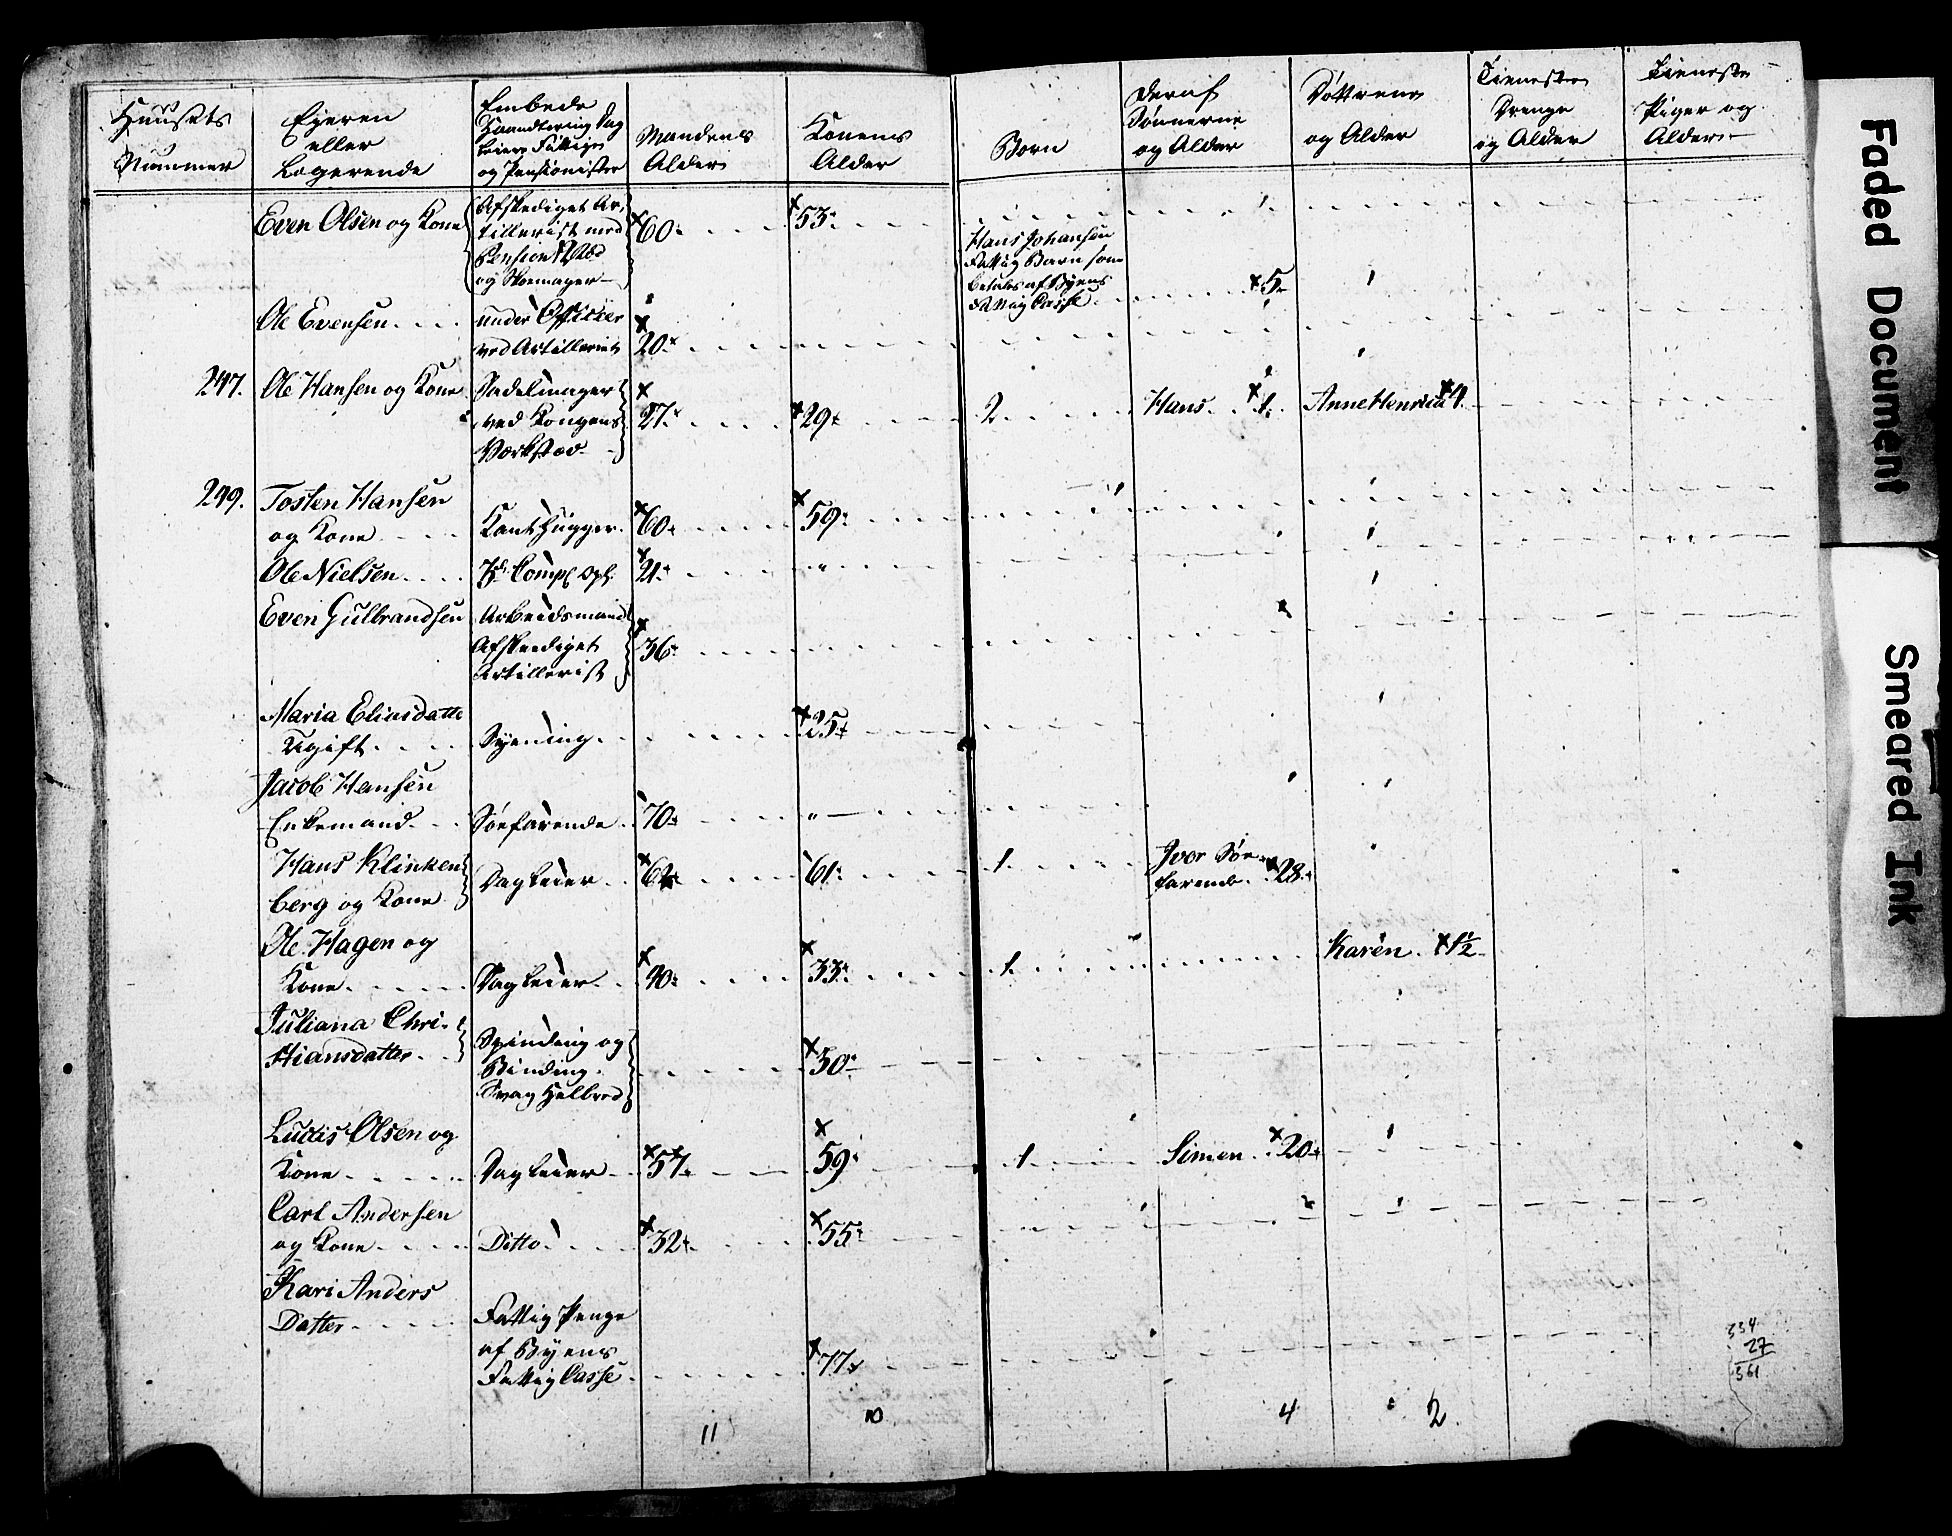 Huusets Nummer
Ejeren eller Logerende
Embede Haandtering Dagleiere Fattige og Pensionister
Mandens Alder
Konens Alder
Børn
Deraf Sønnerne og Alder
Døttrene og Alder
Tieneste Drenge og Alder
Tieneste Piger og Alder
Even Olsen og Kone
Afskediget Ar-
tillerist med
Pension
og Skomager
60
53
Hans Johansen
Fattig Barn som
betales af Byens
Fattig Casse
5
Ole Evensen
under Officier
ved Artilleriet
20
247. Ole Hansen og Kone
Sadelmager
ved Kongens
Værksted
27
29
2
Hans 1
Anne Henrica 4
249. Tosten Hansen
og Kone
Kanthugger
60
59
Ole Nielsen
21
"
Even Gulbrandsen
Arbeidsmand
Afskediget
Artillerist
36
Maria Eliasdatte
Ugift
Syening
25
Jacob Hansen
Enkemand
Søefarende
70
"
Hans Klinken
berg og Kone
Dagleier
62
61
1
Iver Søe
farende 28
Ole Hagen og
Kone
Dagleier
40
33
1
Karen 1½
Juliana Chri-
stiansdatter
Spinding og
Binding
Svag Helbred
50
Ludis Olsen og
Kone
Dagleier
57
59
1
Simen 20
Carl Andersen
og Kone
Ditto
32
55
Kari Anders
Datter
Fattig Penge
af Byens
Fattig Casse
77
11
10
4
2
334
27
361
Faded Document
Smeared Ink